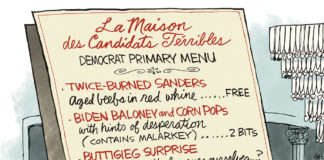 La Maison
des Candidats Terribles
DEMOCRAT PRIMARY MENU
• TWICE-BURNED SANDERS
Aged beefs in red whine......FREE
• BIDEN BALONEY AND CORN POPS
with hints of desperation
(CONTAINS MALARKEY).....2 BITS
• BUTTIGIEG SURPRISE